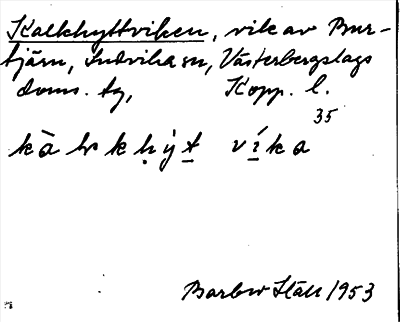 Kalkhyttviken, vik av Bur-
tjärn, Ludvika sn, Västerbergslags
doms. tg, Kopp. l.
35
kàlvkḥýt víka
1953